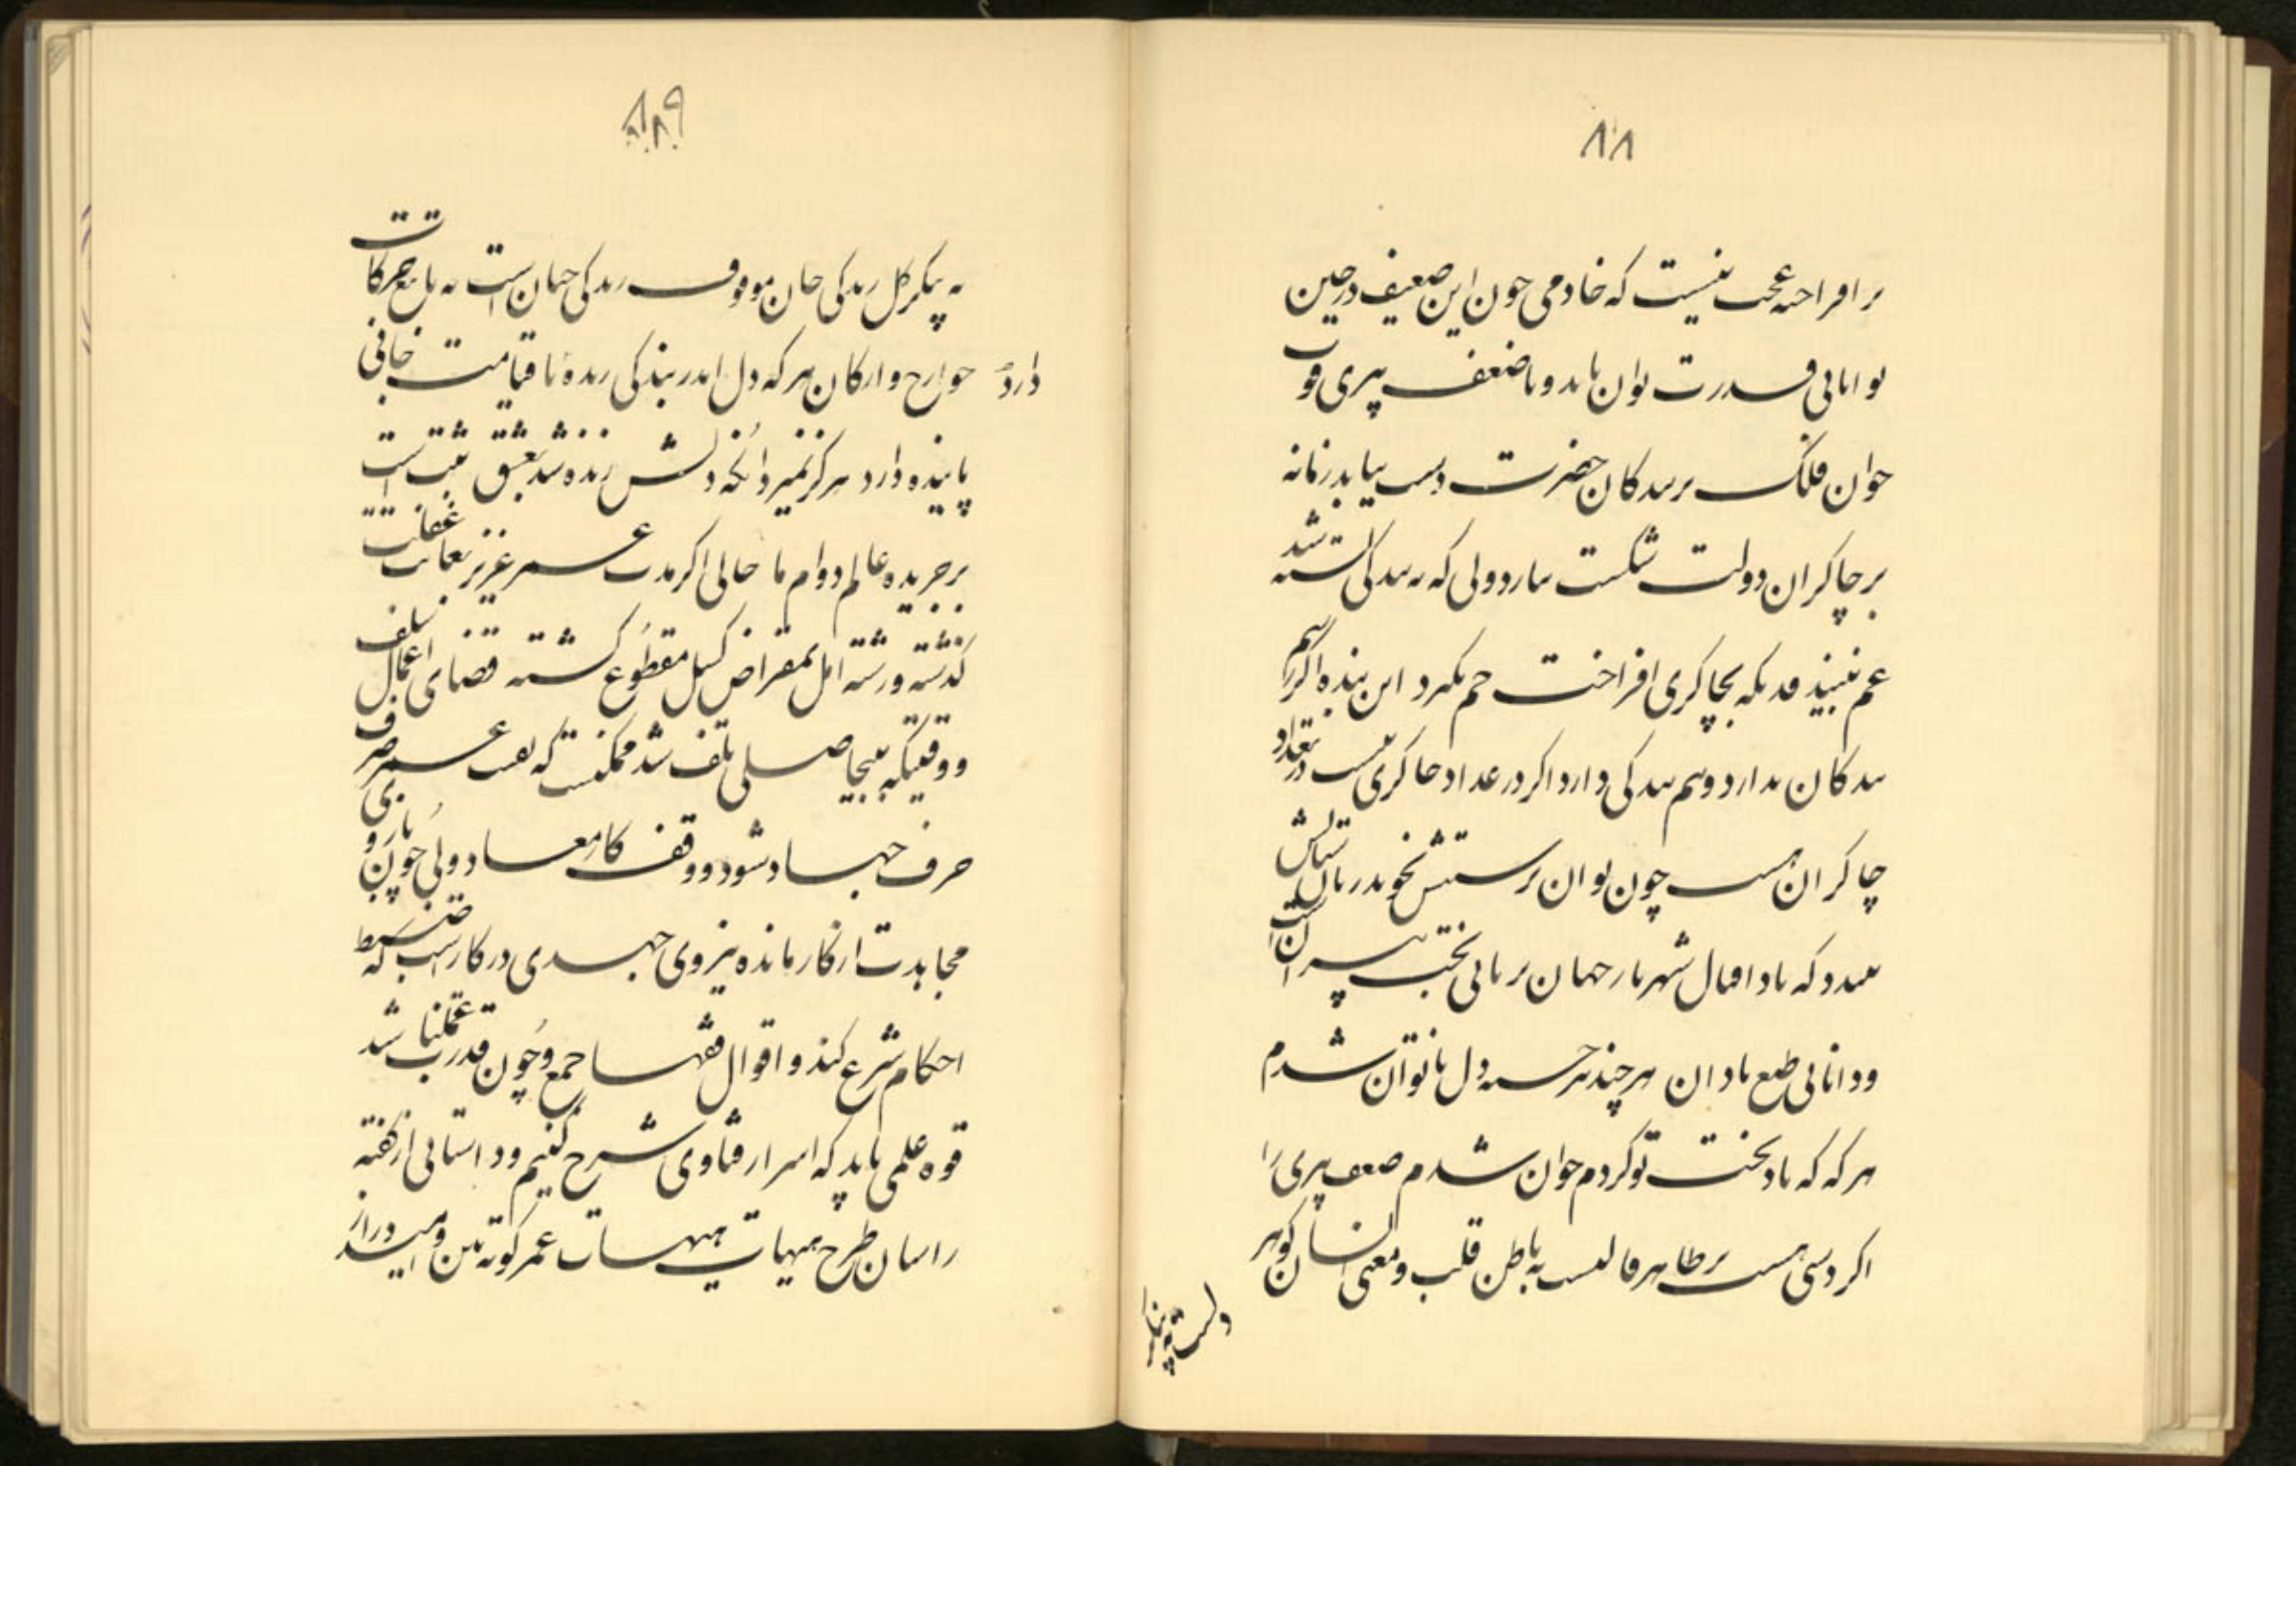 ۸۸
بر افراخته عجب نیست که خادمی چون این ضعیف در حین
توانائی قدرت توان یابد و با ضعف پیری قوت
جوان فلک بر بندکان حضرت دست نیابد زمانه
بر چاکران دولت شکست نیارد دولی که به بندکی بسته شد
غم نبیند قدیکه بچاکری افراخت خم نکیرد این بنده اکر اسم
بندکان ندارد رسم بندکی دارد اکر در عداد چاکری نیست در تعداد
چاکران هست چون توان پرستش نخویدر بال ستایش
بندد که یاد اقبال شهریار جهان برنائی بخت پیران است
و دانائی طبع نادان هرچند پیر خسته دل ناتوان شدم
هر که که یاد بخت تو کردم جوان شدم ضعف پیری را
اکر دستی هست بر ظاهر قالبست نه باطن قلب و معنی انسان کوهر
دلست نه پیکر
۸۹
نه پیکر کل زندکی جان موقوف زندکی جهان است نه تابع حرکات
جوارح و ارکان هر که دل اندر بندکی زنده تا قیامت جانی
دارد
پاینده دارد هرکز نمیرد آنکه دلش زنده شد بعشق ثبت است
بر جریده عالم دوام ما حالی اکر مدت عمر عزیز بغایت غفلت
کذشته و رشته امل بمقراض کسل مقطوع کشته قضای اعمال سلف
و وقتیکه بیحاصلی تلف شد ممکنست که بقیت عمر صرف بی
حرف جهاد شود و وقف کار معاد ولی چون بازو
مجاهدت از کار مانده نیروی جهدی در کار است که ضبط
احکام شرع کند و اقوال فقها جمع و چون قدرت عمل نباشد
قوه علمی باید که اسرار فتاوی شرح کنیم و داستانی از کفته
راسان طرح هیهات هیهات عمر کوته بین و امید دراز